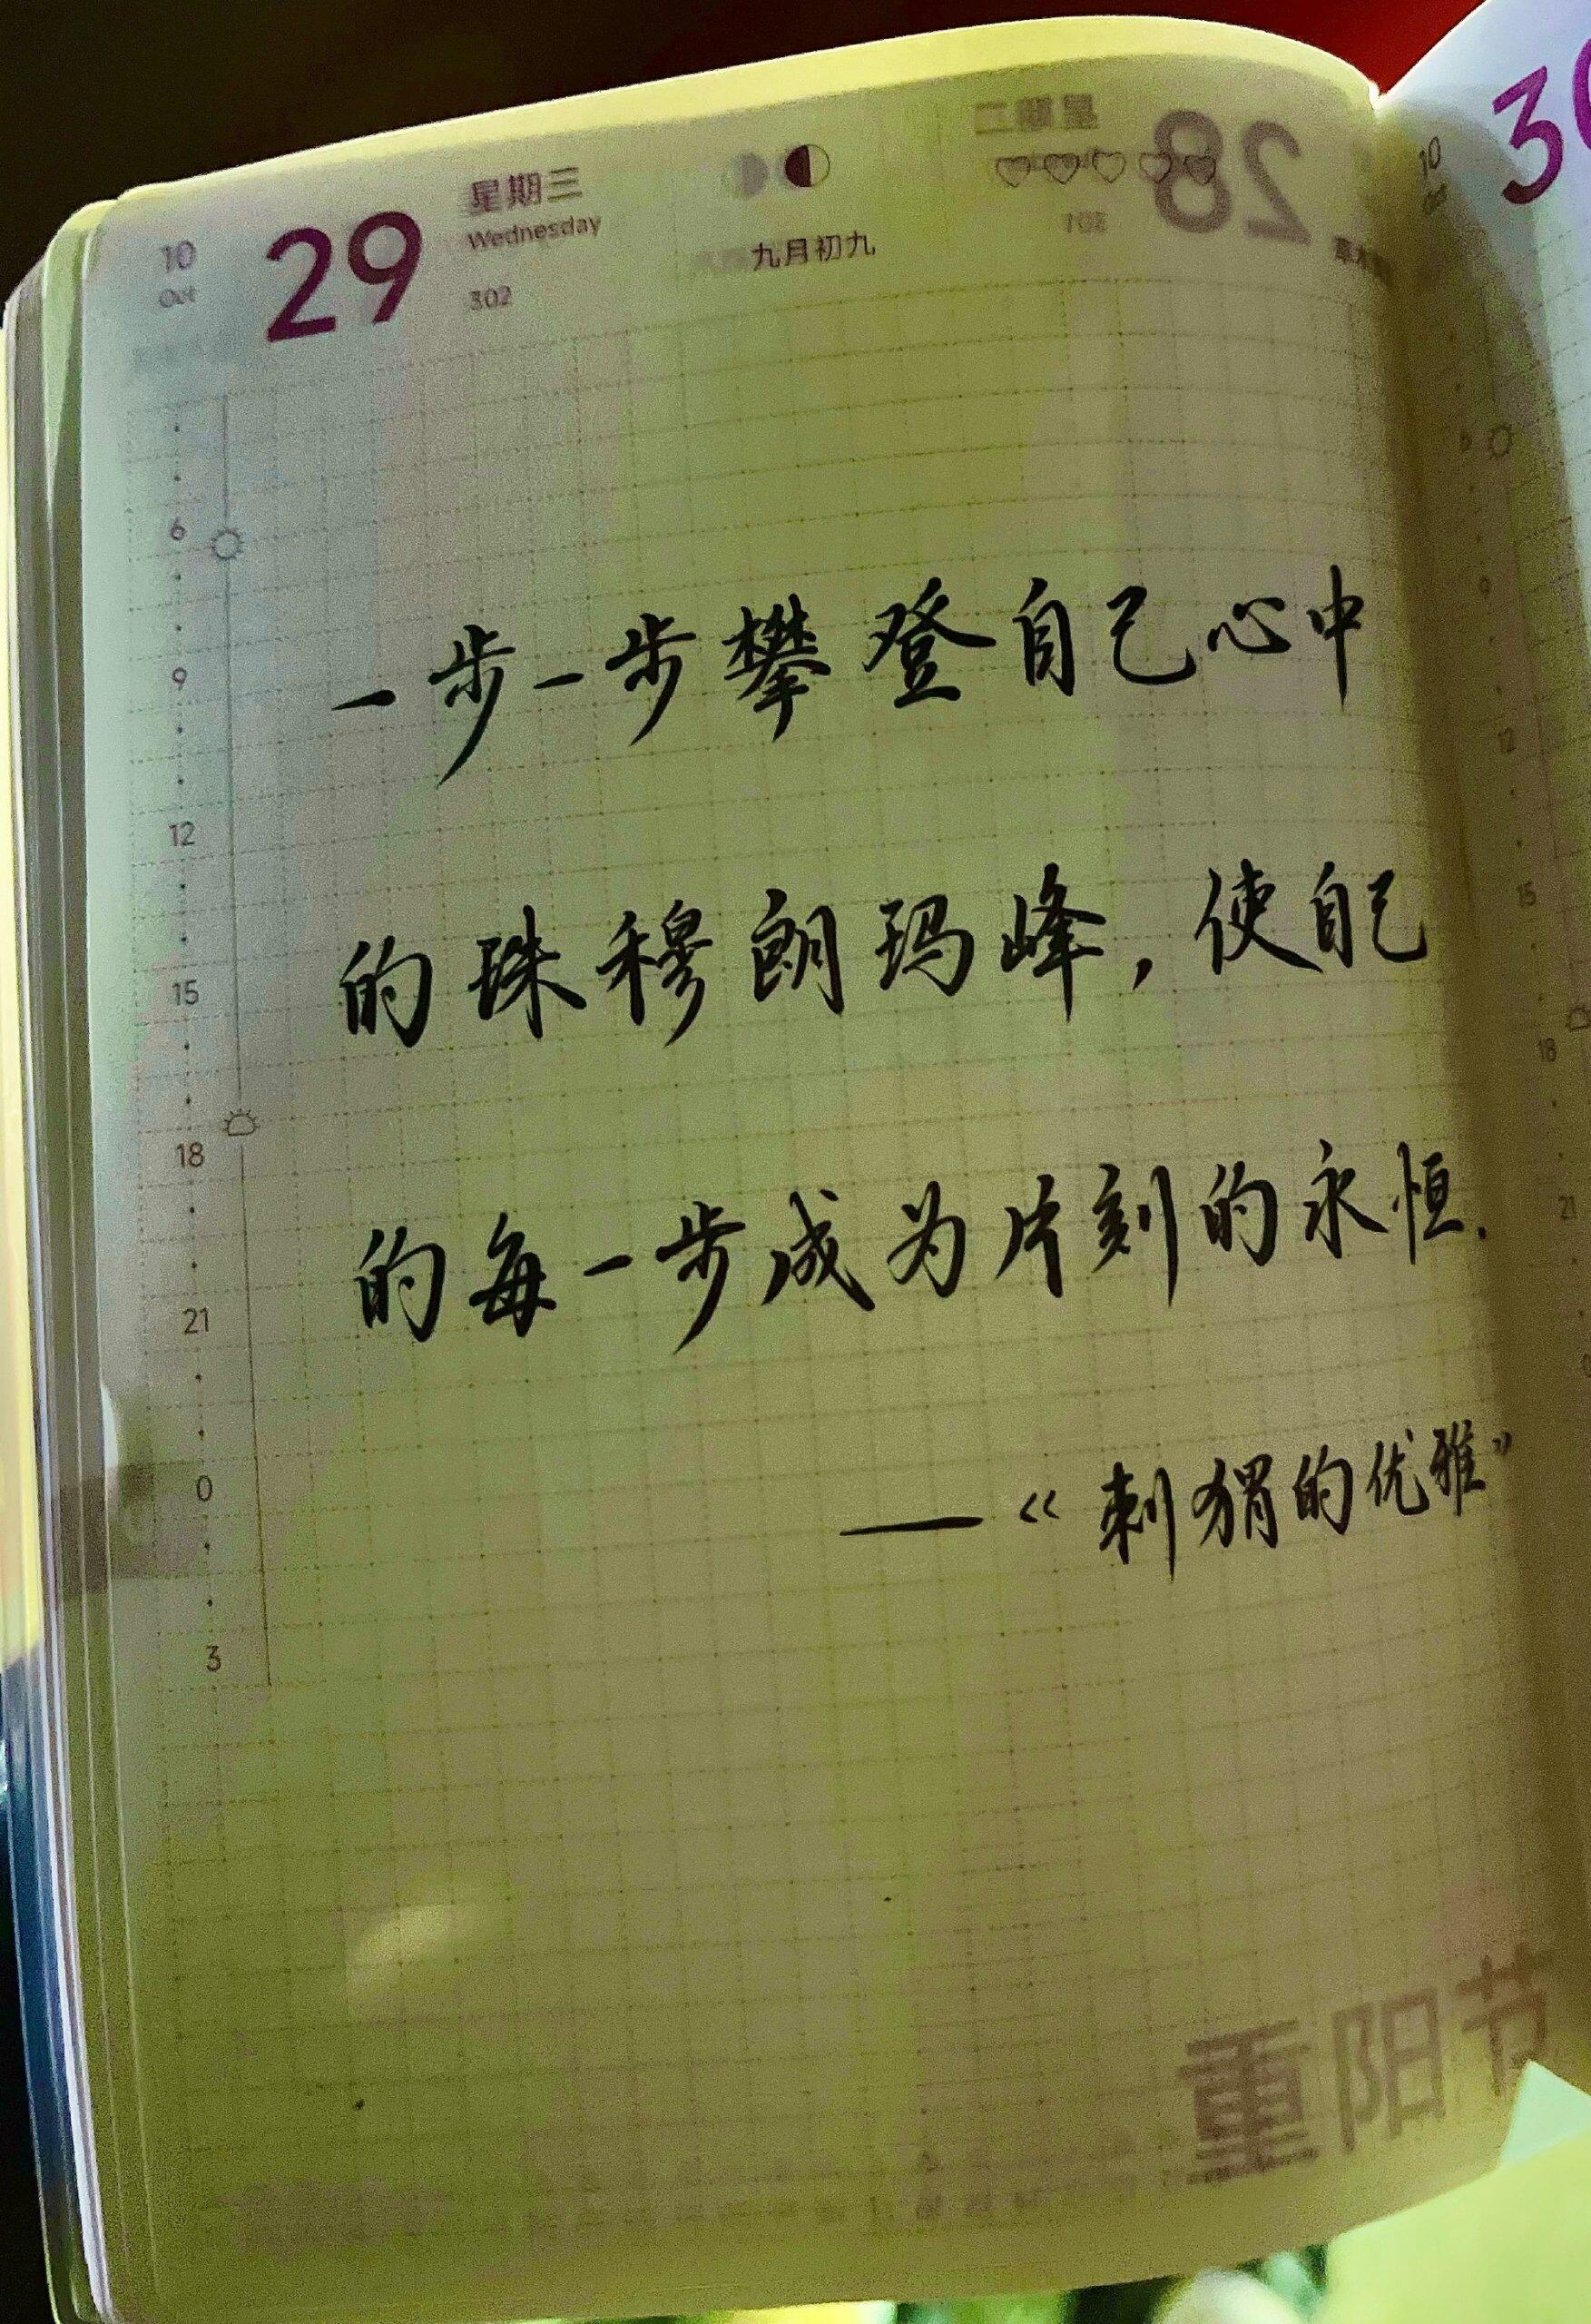 10
Oct
29
星期三
Wednesday
302
九月初九
28
星期二
301
30
10
一步一步攀登自己心中
的珠穆朗玛峰，使自己
的每一步成为片刻的永恒.
——《刺猬的优雅》
6
9
12
15
18
21
0
3
9
12
15
18
21
重阳节